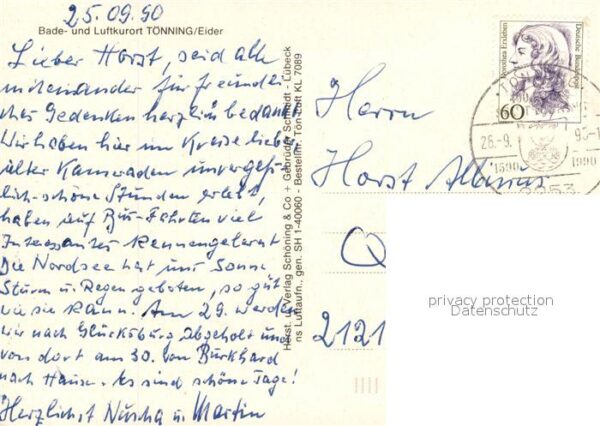 25.09.90
Bade- und Luftkurort TÖNNING/Eider
Lieber Horst, seid alle
miteinander für freundli
ches Gedenken herzlich bedankt
Wir haben hier im Kreise lieber
alter Kameraden unvergeß-
lich-schöne Stunden erlebt,
haben auf Bus-Fahrten viel
Interessantes kennengelernt
Die Nordsee hat uns Sonne
Sturm u. Regen geboten, so gut
wie sie kann. Am 29. werden
wir nach Glücksburg abgeholt und
von dort am 30. von Burkhard
nach Hause. Es sind schöne Tage!
Herzlichst Nuscha u. Martin
Herst. u. Verlag Schöning & Co + Gebrüder Schmidt - Lübeck
ns Luftaufn., gen. SH 1-40060 - Bestellnr. Tön Luft KL 7089
Herrn
Horst
2121
Dorothea Erxleben
Deutsche Bundespost
60
26.-9.
1590
1990
2253
privacy protection
Datenschutz